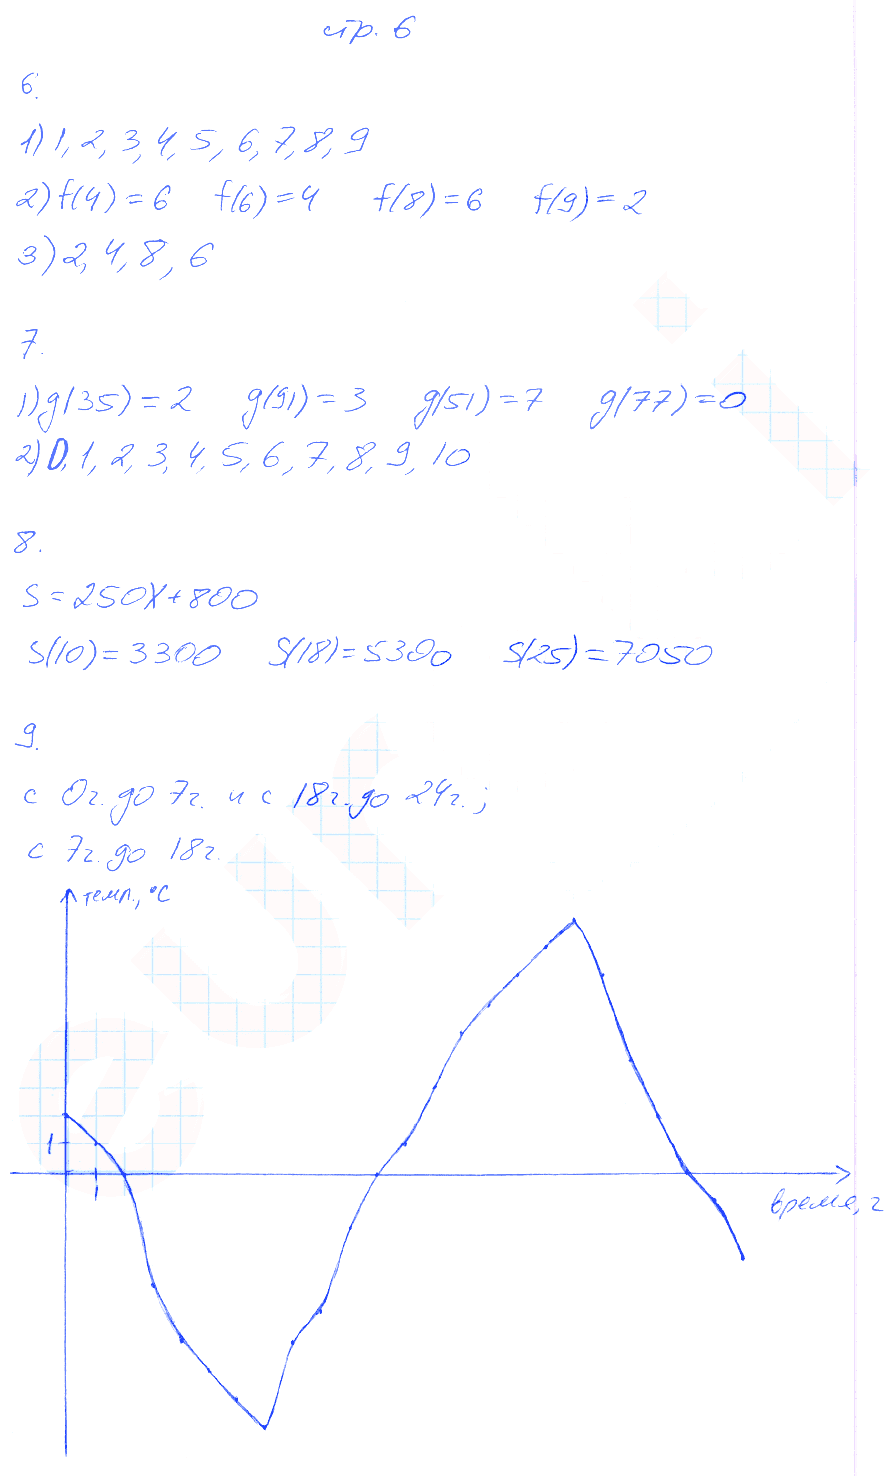 стр. 6
6.
1) 1, 2, 3, 4, 5, 6, 7, 8, 9
2) f(4) = 6 f(6) = 4 f(8) = 6 f(9) = 2
3) 2, 4, 8, 6
7.
1) g(35) = 2 g(91) = 3 g(51) = 7 g(77) = 0
2) 0, 1, 2, 3, 4, 5, 6, 7, 8, 9, 10
8.
S = 250x + 800
S(10) = 3300 S(18) = 5300 S(25) = 7050
9.
с 0г. до 7г. и с 18г. до 24г.;
с 7г. до 18г.
темп., °C
1
1
время, г
eur i